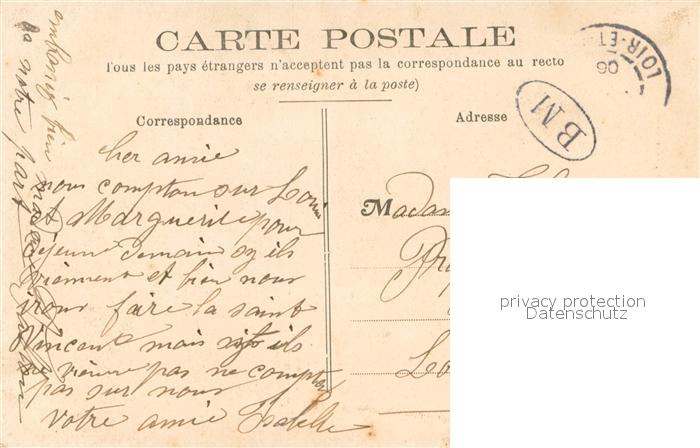 CARTE POSTALE
Tous les pays étrangers n'acceptent pas la correspondance au recto
se renseigner à la poste)
Correspondance
Adresse
LOIR-ET-
06
BM
cher amie
nous compton sur Louis
et Marguerite pour
déjeuné Demain sy ils
viennent et bien nous
irons faire la saint
Vincent mais si ils
ne vienne pas ne compton
pas sur nous
votre amie Isabelle
embrassé bien
de notre part
Madam
Pro
Lo
privacy protection
Datenschutz